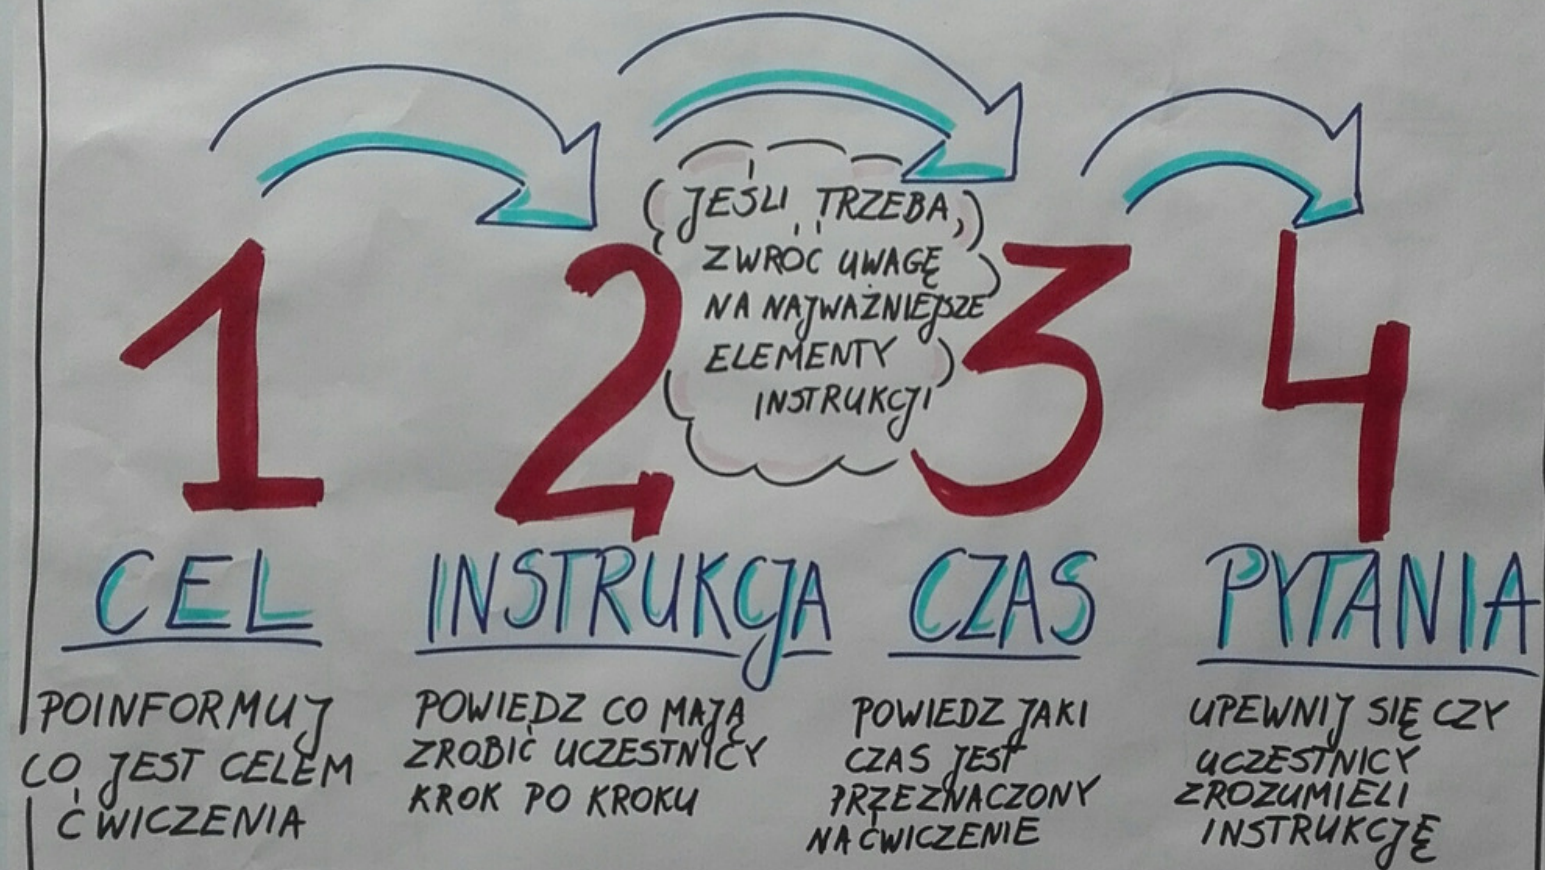 1
CEL
POINFORMUJ
CO JEST CELEM
ĆWICZENIA
2
INSTRUKCJA
POWIEDZ CO MAJĄ
ZROBIĆ UCZESTNICY
KROK PO KROKU
JEŚLI TRZEBA,
ZWRÓĆ UWAGĘ
NA NAJWAŻNIEJSZE
ELEMENTY
INSTRUKCJI
3
CZAS
POWIEDZ JAKI
CZAS JEST
PRZEZNACZONY
NA ĆWICZENIE
4
PYTANIA
UPEWNIJ SIĘ CZY
UCZESTNICY
ZROZUMIELI
INSTRUKCJĘ